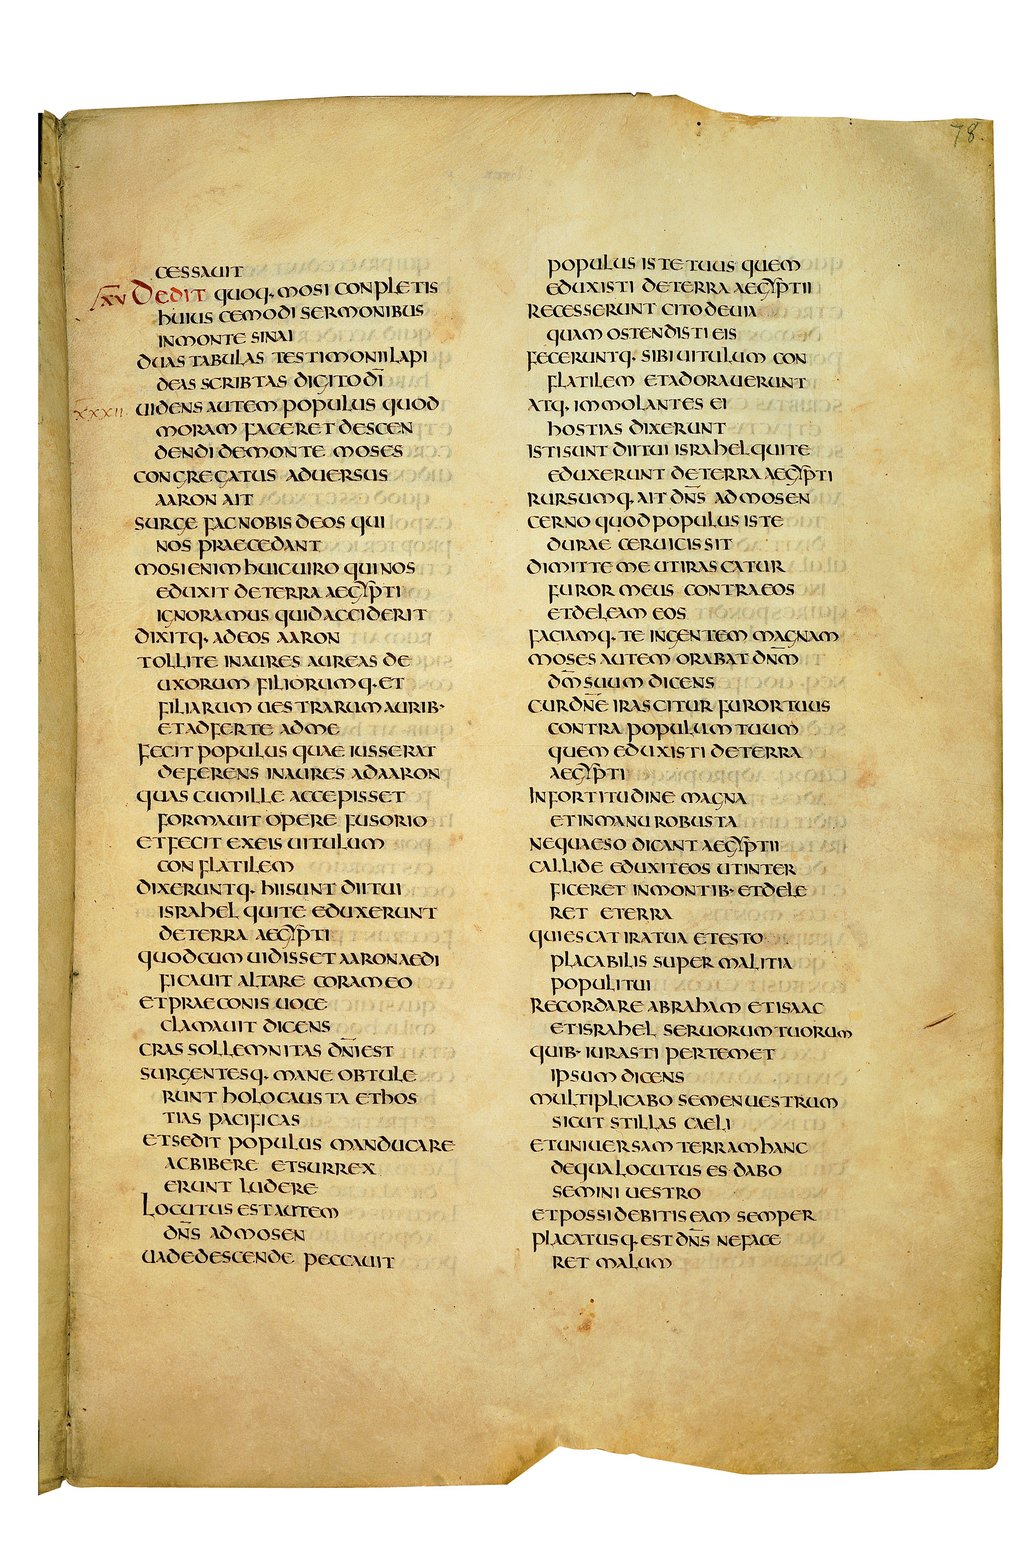 78.
CESSAUIT
XV DEDIT QUOQ· MOSI CONPLETIS
HUIUS CEMODI SERMONIBUS
IN MONTE SINAI
DUAS TABULAS TESTIMONII LAPI
DEAS SCRIBTAS DIGITO DĪ
XXXII UIDENS AUTEM POPULUS QUOD
MORAM FACERET DESCEN
DENDI DE MONTE MOSES
CONGREGATUS ADUERSUS
AARON AIT
SURGE FAC NOBIS DEOS QUI
NOS PRAECEDANT
MOSI ENIM HUIC UIRO QUI NOS
EDUXIT DE TERRA AEGYPTI
IGNORAMUS QUID ACCIDERIT
DIXITQ· AD EOS AARON
TOLLITE INAURES AUREAS DE
UXORUM FILIORUMQ· ET
FILIARUM UESTRARUM AURIB·
ET ADFERTE AD ME
FECIT POPULUS QUAE IUSSERAT
DEFERENS INAURES AD AARON
QUAS CUM ILLE ACCEPISSET
FORMAUIT OPERE FUSORIO
ET FECIT EX EIS UITULUM
CONFLATILEM
DIXERUNTQ· HII SUNT DII TUI
ISRAHEL QUI TE EDUXERUNT
DE TERRA AEGYPTI
QUOD CUM UIDISSET AARON AEDI
FICAUIT ALTARE CORAM EO
ET PRAECONIS UOCE
CLAMAUIT DICENS
CRAS SOLLEMNITAS DN̄I EST
SURGENTESQ· MANE OBTULE
RUNT HOLOCAUSTA ET HOS
TIAS PACIFICAS
ET SEDIT POPULUS MANDUCARE
AC BIBERE ET SURREX
ERUNT LUDERE
LOCUTUS EST AUTEM
DN̄S AD MOSEN
UADE DESCENDE PECCAUIT
POPULUS ISTE TUUS QUEM
EDUXISTI DE TERRA AEGYPTII
RECESSERUNT CITO DE UIA
QUAM OSTENDISTI EIS
FECERUNTQ· SIBI UITULUM CON
FLATILEM ET ADORAUERUNT
ATQ· IMMOLANTES EI
HOSTIAS DIXERUNT
ISTI SUNT DII TUI ISRAHEL QUI TE
EDUXERUNT DE TERRA AEGYPTI
RURSUMQ· AIT DN̄S AD MOSEN
CERNO QUOD POPULUS ISTE
DURAE CERUICIS SIT
DIMITTE ME UT IRASCATUR
FUROR MEUS CONTRA EOS
ET DELEAM EOS
FACIAMQ· TE IN GENTEM MAGNAM
MOSES AUTEM ORABAT DN̄M
DM̄ SUUM DICENS
CUR DN̄E IRASCITUR FUROR TUUS
CONTRA POPULUM TUUM
QUEM EDUXISTI DE TERRA
AEGYPTI
IN FORTITUDINE MAGNA
ET IN MANU ROBUSTA
NE QUAESO DICANT AEGYPTII
CALLIDE EDUXIT EOS UT INTER
FICERET IN MONTIB· ET DELE
RET E TERRA
QUIESCAT IRA TUA ET ESTO
PLACABILIS SUPER MALITIA
POPULI TUI
RECORDARE ABRAHAM ET ISAAC
ET ISRAHEL SERUORUM TUORUM
QUIB· IURASTI PER TEMET
IPSUM DICENS
MULTIPLICABO SEMEN UESTRUM
SICUT STILLAS CAELI
ET UNIUERSAM TERRAM HANC
DE QUA LOCUTUS ES DABO
SEMINI UESTRO
ET POSSIDEBITIS EAM SEMPER
PLACATUSQ· EST DN̄S NE FACE
RET MALUM